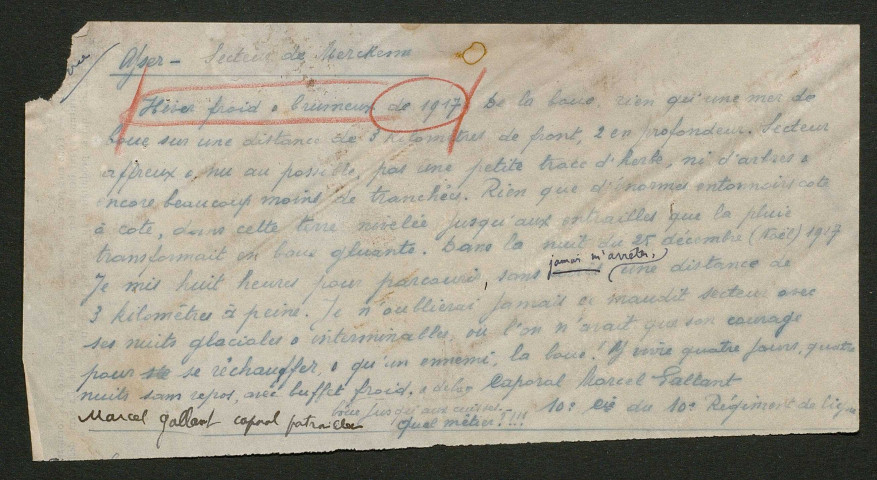 Yser - Secteur de Merckem
Hiver froid & brumeux de 1917 De la boue, rien qu'une mer de
boue sur une distance de 3 kilomètres de front, 2 en profondeur. Secteur
affreux &, nu au possible, pas une petite trace d'herbe, ni d'arbres &
encore beaucoup moins de tranchées. Rien que d'énormes entonnoirs cote
à cote, dans cette terre nivelée jusqu'aux entrailles que la pluie
transformait en boue gluante. Dans la nuit du 25 décembre (Noël) 1917
jamais m'arrêter,
Je mis huit heures pour parcourir, sans une distance de
3 kilomètres à peine. Je n'oublierai jamais ce maudit secteur avec
ses nuits glaciales & interminables, ou l'on n'avait que son courage
pour se réchauffer, & qu'un ennemi, la boue! Y vivre quatre jours, quatre
nuits sans repos, avec buffet froid, & de la Caporal Marcel Gallant
boue jusqu'aux cuisses. 10e Cie du 10e Régiment de ligne
Marcel Gallant caporal patrouilleur quel métier!!!!